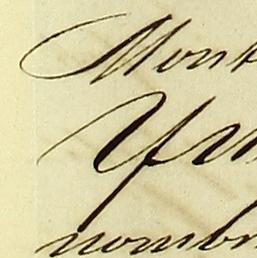 Mont
Yru
nombr